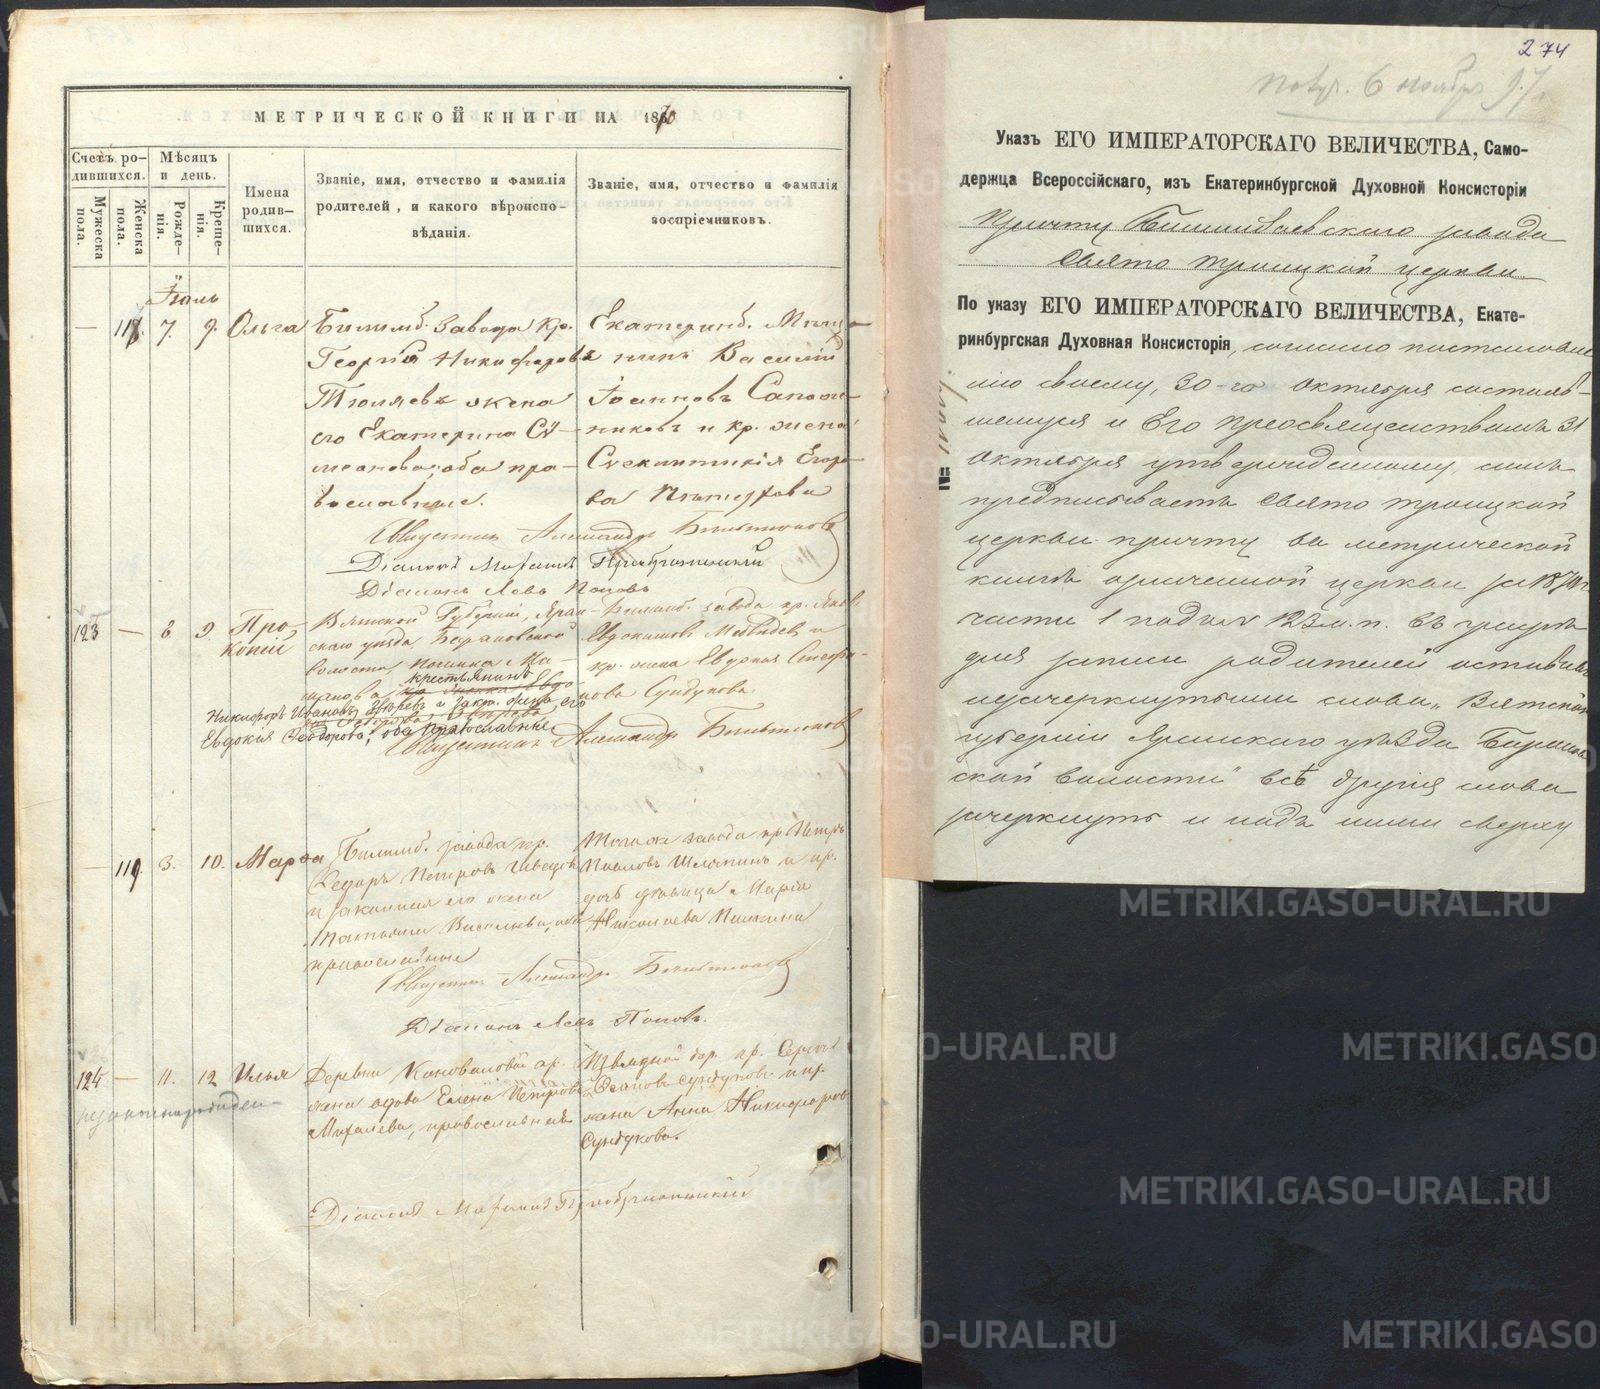 МЕТРИЧЕСКОЙ КНИГИ НА 1870
Счетъ ро-
дившихся.
Мужеска
пола.
Женска
пола.
Мѣсяцъ
и день.
Рожде-
нія.
Креще-
нія.
Имена
родив-
шихся.
Званіе, имя, отчество и фамилія
родителей, и какого вѣроиспо-
вѣданія.
Званіе, имя, отчество и фамилія
воспріемниковъ.
Іюль
— 118. 7. 9. Ольга
Билимб. завода кр.
Георгій Никифоровъ
Тюляевъ жена
его Екатерина Си-
меонова, оба пра-
вославные.
Екатеринб. Мѣща-
нинъ Василій
Іоанновъ Сапож-
никовъ и кр. жена
Синклитикія Егоро-
ва
Священникъ Александръ
Діаконъ Преображенскій
Діаконъ Левъ Поповъ
123 — 8 9. Про-
копій
Вятской Губерніи, Яран-
скаго уѣзда, Барановской
волости, починка Ма-
крестьянинъ
Никифоръ Ивановъ Зыревъ и закон. жена его
Евдокія Феодорова, оба православные
Билимб. завода кр. Яковъ
Евдокимовъ Медвѣдевъ и
кр. жена Евдокія Стефа-
нова Сундукова
Священникъ Александръ
— 119. 3. 10. Марѳа
Билимб. завода кр.
Ѳедоръ Петровъ Шведовъ
и законная его жена
Татьяна Васильева, оба
православные
Тогоже завода кр. Петръ
Павловъ Шляпинъ и кр.
дочь дѣвица Марія
Николаева Пышкина
Священникъ Александръ
Діаконъ Левъ Поповъ.
124 — 11. 12 Илья
незаконнорожден—
Деревни Коноваловой кр.
жена вдова Елена Петрова
Михалева, православная
дер. кр. Сергій
Осиповъ Сундуковъ и кр.
жена Анна Никифорова
Сундукова.
Діаконъ Преображенскій
274
Получ. 6 ноября 97.
Указъ ЕГО ИМПЕРАТОРСКАГО ВЕЛИЧЕСТВА, Само-
держца Всероссійскаго, изъ Екатеринбургской Духовной Консисторіи
Причту Билимбаевскаго завода
Свято Троицкой церкви.
По указу ЕГО ИМПЕРАТОРСКАГО ВЕЛИЧЕСТВА, Екате-
ринбургская Духовная Консисторія, согласно постановле-
нію своему, 30-го Октября состояв-
шемуся и Его Преосвященствомъ 31
Октября утвержденному, симъ
предписываетъ Свято Троицкой
церкви причту въ метрической
книгѣ означенной церкви за 1870 г.
части 1 подъ № 123 м. п. въ графѣ
для записи родителей оставивъ
незачеркнутыми слова „Вятской
губерніи Яранскаго уѣзда Баранов-
ской волости" всѣ другія слова
зачеркнуть и надъ ними сверху
METRIKI.GASO-URAL.RU